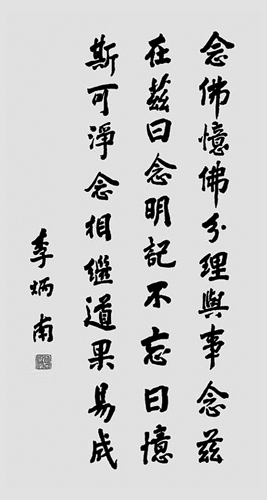 念佛憶佛分理與事念茲
在茲曰念明記不忘曰憶
斯可淨念相繼道果易成
李炳南